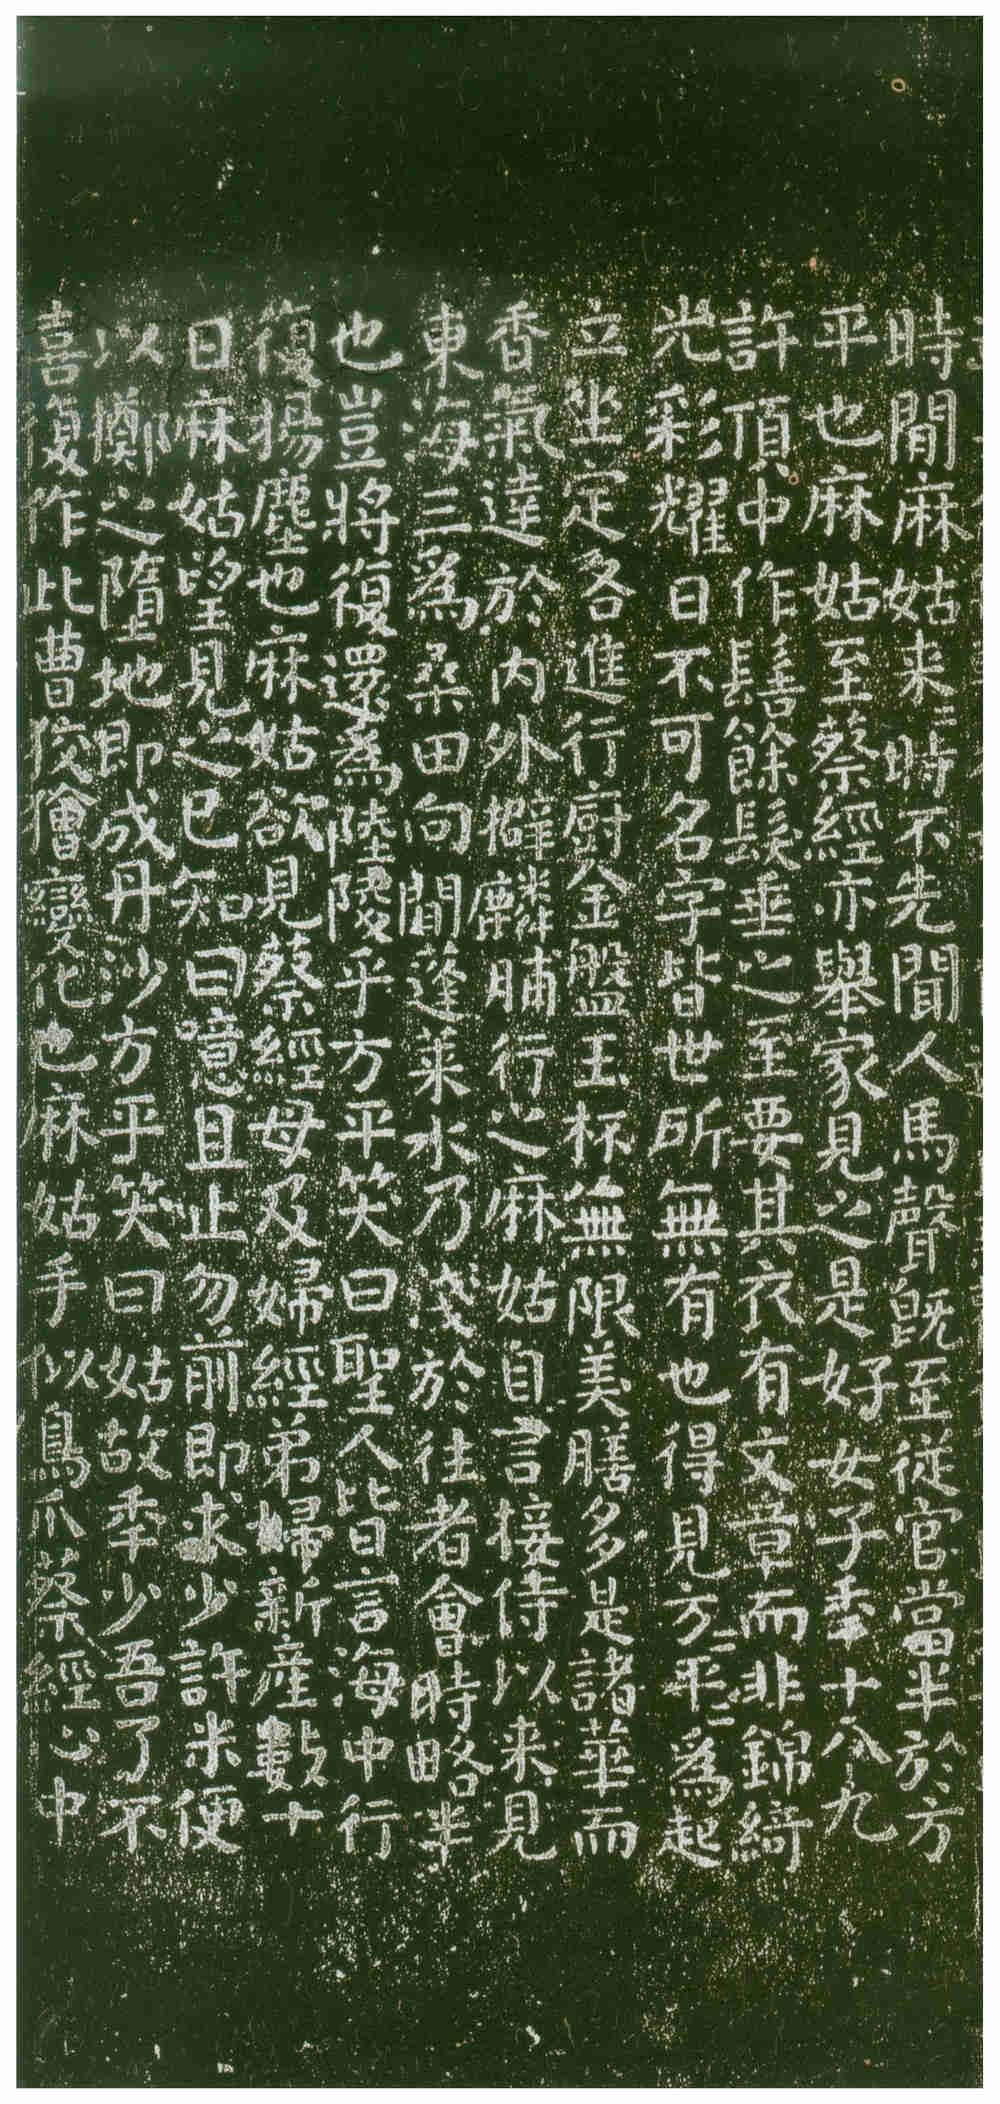 時間麻姑来〻時不先聞人馬聲既至從官當半於方
平也麻姑至蔡經亦舉家見之是好女子年十八九
許頂中作髻餘髮垂之至要其衣有文章而非錦綺
光彩耀日不可名字皆世所無有也得見方〻平〻為起
立坐定各進行廚金盤玉杯無限美膳多是諸華而
香氣達於內外擗麟脯行之麻姑自言接侍以来見
東海三為桑田向間蓬萊水乃淺於往者會時略半
也豈將復還為陸陵乎方平笑曰聖人皆言海中行
復揚塵也麻姑欲見蔡經母及婦經弟婦新產數十
日麻姑望見之已知曰噫且止勿前即求少許米便
以擲之墮地即成丹沙方平笑曰姑故年少吾了不
喜復作此曹狡獪變化也麻姑手似鳥爪蔡經心中